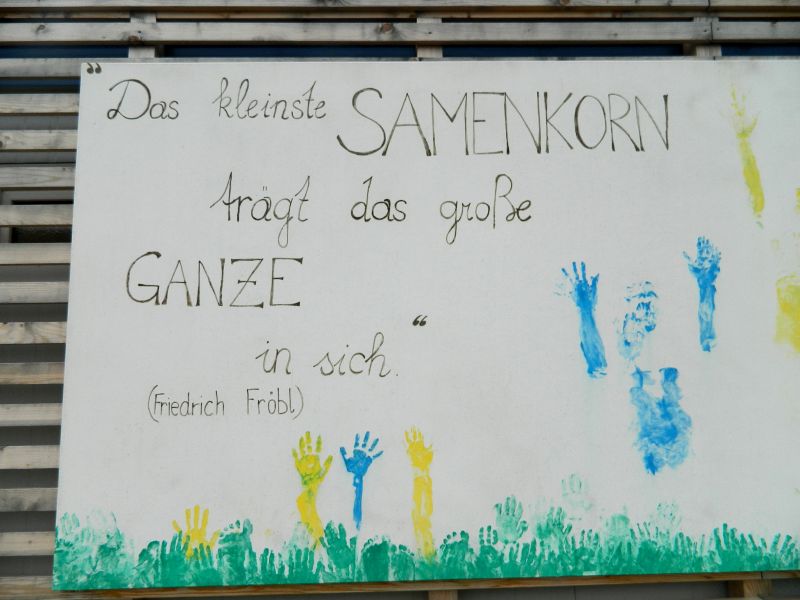 "Das kleinste SAMENKORN
trägt das große
GANZE
in sich."
(Friedrich Fröbl)